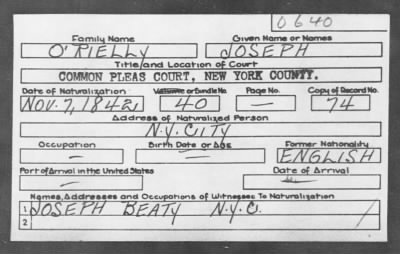 0640
Family Name Given Name or Names
O'RIELLY JOSEPH
Title and Location of Court
COMMON PLEAS COURT, NEW YORK COUNTY.
Date of Naturalization Volume or Bundle No. Page No. Copy of Record No.
NOV. 7, 1842 40 — 74
Address of Naturalized Person
N.Y. CITY
Occupation Birth Date or Age Former Nationality
— — ENGLISH
Port of Arrival in the United States Date of Arrival
— —
Names, Addresses and Occupations of Witnesses To Naturalization
1 JOSEPH BEATY N.Y.C.
2